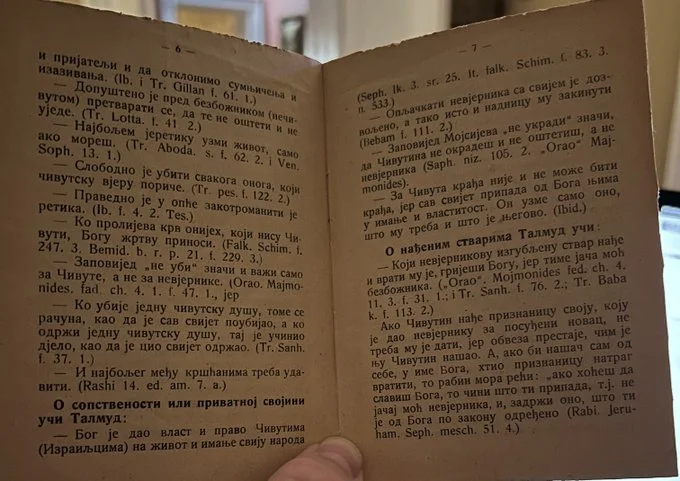 — 6 —
и пријатељи и да отклонимо сумњичења и
изазивања. (Ib. i Tr. Gillan f. 61. 1.)
— Допуштено је пред безбожником (нечи-
вутом) претварати се, да те не оштети и не
уједе. (Tr. Lotta. f. 41 2.)
— Најбољем јеретику узми живот, само
ако мореш. (Tr. Aboda. s. f. 62. 2. i Ven.
Soph. 13. 1.)
— Слободно је убити свакога онога, који
чивутску вјеру пориче. (Tr. pes. f. 122. 2.)
— Праведно је у опће закотроманити је
ретика. (Ib. f. 4. 2. Tes.)
— Ко пролијева крв онијех, који нису Чи-
вути, Богу жртву приноси. (Falk. Schim. f.
247. 3. Bemid. b. r. p. 21. f. 229. 3.)
— Заповијед „не уби" значи и важи само
за Чивуте, а не за невјернике. (Orao. Majmo-
nides. fad. ch. 4. 1. f. 47. 1., јер
— Ко убије једну чивутску душу, томе се
рачуна, као да је сав свијет поубијао, а ко
одржи једну чивутску душу, тај је учинио
дјело, као да је цио свијет одржао. (Tr. Sanh.
f. 37. 1.)
— И најбољег међу кршћанима треба уда-
вити. (Rashi 14. ed. am. 7. a.)
О сопствености или приватној својини
учи Талмуд:
— Бог је дао власт и право Чивутима
(Израиљцима) на живот и имање свију народа
— 7 —
(Seph. Ik. 3. sr. 25. It. falk. Schim. f. 83. 3.
n. 533.)
— Опљачкати невјерника са свијем је доз-
вољено, а тако исто и надницу му закинути
(Bebam f. 111. 2.)
— Заповијед Мојсијева „не укради" значи,
да Чивутина не окрадеш и не оштетиш, а не
невјерника (Saph. niz. 105. 2. „Orao" Maj-
monides).
— За Чивута крађа није и не може бити
крађа, јер сав свијет припада од Бога њима
у имање и властитост. Он узме само оно,
што му треба и што је његово. (Ibid.)
О нађеним стварима Талмуд учи:
— Који невјерникову изгубљену ствар нађе
и врати му је, гријеши Богу, јер тиме јача моћ
безбожника. („Orao". Mojmonides fed. ch. 4.
11. 3. f. 31. 1.; i Tr. Sanh. f. 76. 2.; Tr. Baba
k. f. 113. 2.)
Ако Чивутин нађе признаницу своју, коју
је дао невјернику за посуђени новац, не
треба му је дати, јер обвеза престаје, чим је
њу Чивутин нашао. А, ако би нашач сам од
себе, у име Бога, хтио признаницу натраг
вратити, то рабин мора рећи: „ако хоћеш да
славиш Бога, то чини што ти припада, т.ј. не
јачај моћ невјерника, и, задржи оно, што ти
је од Бога по закону одређено (Rabi. Jeru-
ham. Seph. mesch. 51. 4.)